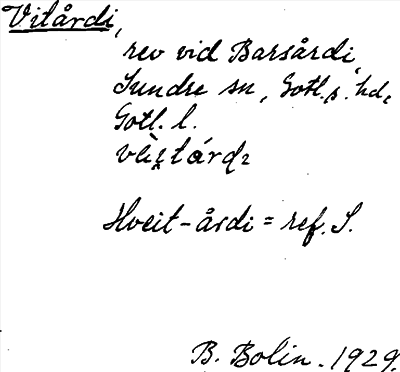 Vitårdi,
rev vid Barsårdi,
Sundre sn, Gotl. s. hd,
Gotl. l.
Hveit-årdi = ref. S.
B. Bolin. 1929.